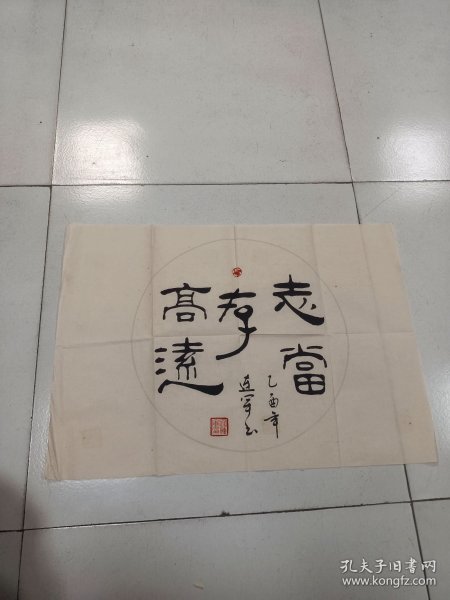 志當
存
高遠
乙酉年
连军书
孔夫子旧书网
www.kongfz.com